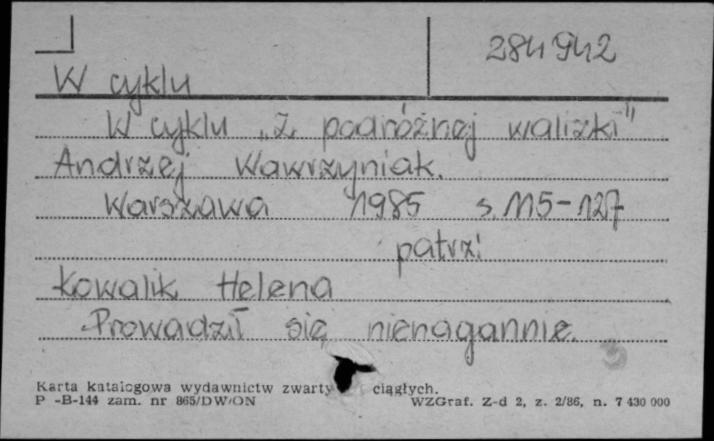 284942
W cyklu
W cyklu „Z podróżnej walizki"
Andrzej Wawrzyniak.
Warszawa 1985 s. 115-127
patrz:
Kowalik Helena
Prowadził się nienagannie.
3
Karta katalogowa wydawnictw zwarty ciągłych.
P -B-144 zam. nr 865/DW/ON WZGraf. Z-d 2, z. 2/86, n. 7 430 000